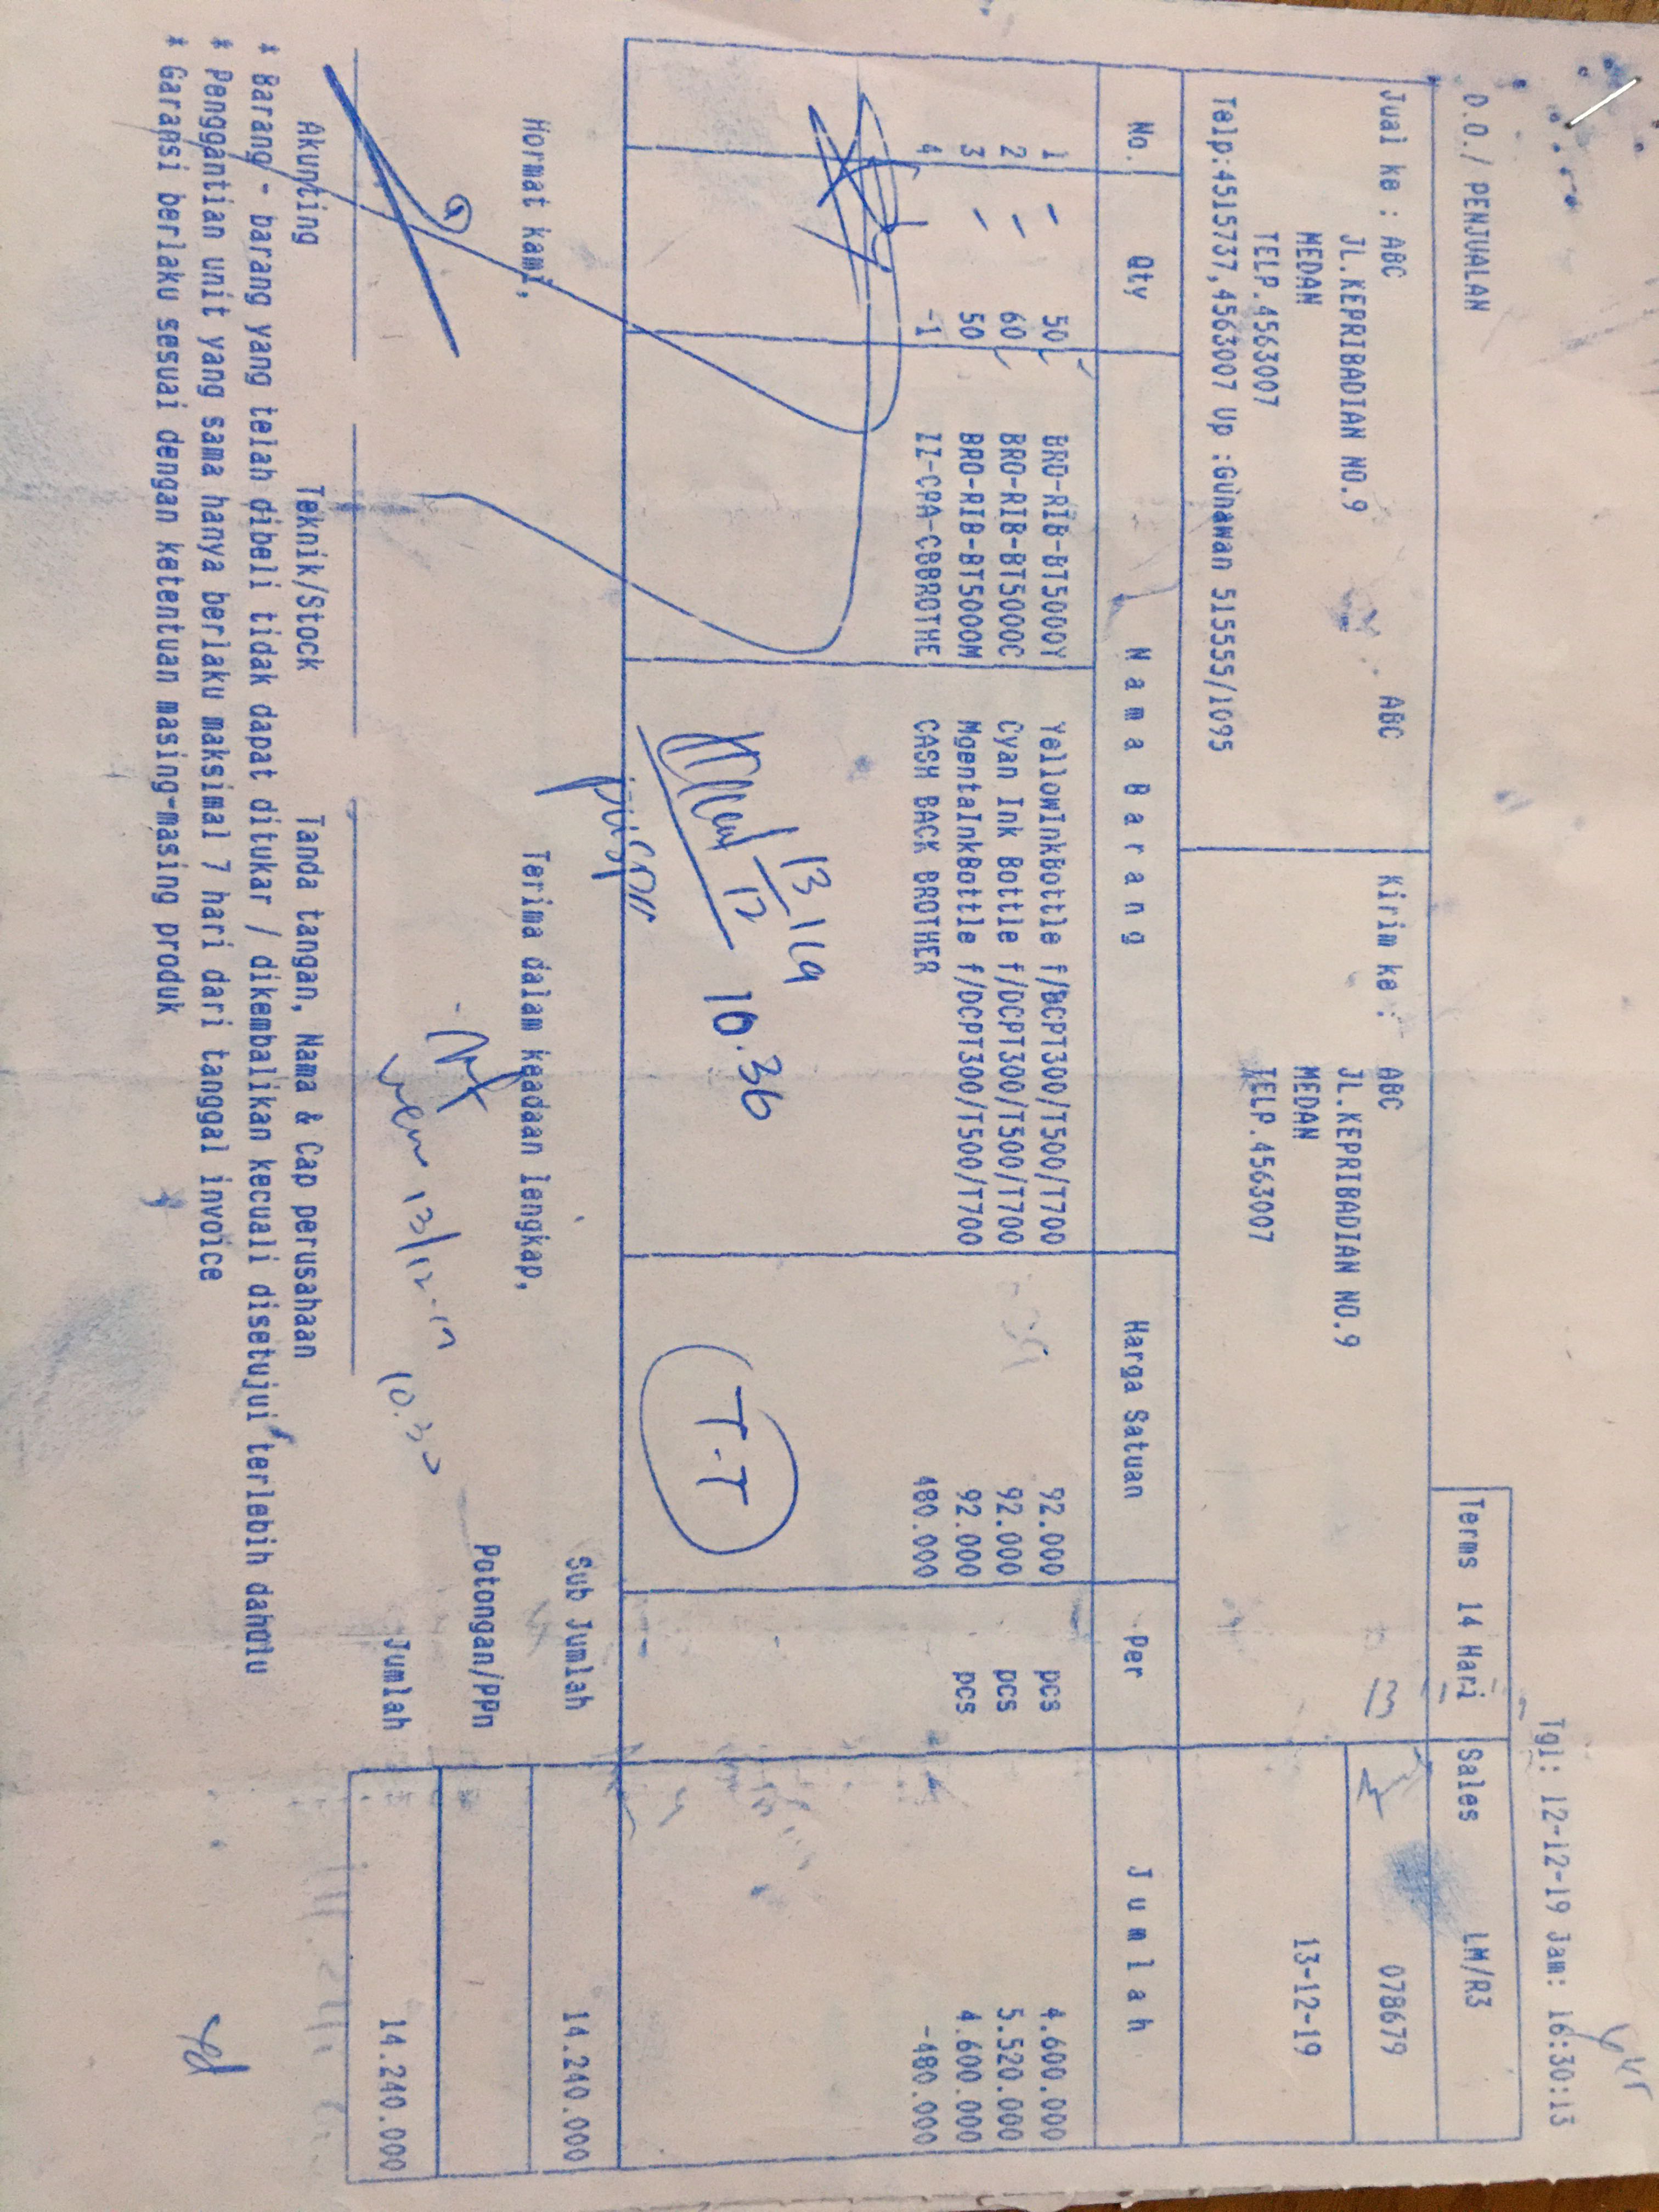 Tgl: 12-12-19 Jam: 16:30:13
D.O./ PENJUALAN
Terms 14 Hari Sales LM/R3
Jual ke : ABC ABC Kirim ke : ABC 13 078679
JL.KEPRIBADIAN NO.9 JL.KEPRIBADIAN NO.9
MEDAN MEDAN 13-12-19
TELP.4563007 TELP.4563007
Telp:4515737,4563007 Up :Gunawan 515555/1095
No. Qty Nama Barang Harga Satuan Per Jumlah
1 50 BRO-RIB-BT5000Y YellowInkBottle f/DCPT300/T500/T700 92.000 pcs 4.600.000
2 60 BRO-RIB-BT5000C Cyan Ink Bottle f/DCPT300/T500/T700 92.000 pcs 5.520.000
3 50 BRO-RIB-BT5000M MgentaInkBottle f/DCPT300/T500/T700 92.000 pcs 4.600.000
4 -1 IZ-CPA-CBBROTHE CASH BACK BROTHER 480.000 -480.000
13/12 19
10.36
T.T
Sub Jumlah 14.240.000
Hormat kami, Terima dalam keadaan lengkap,
Potongan/PPn
Jumlah 14.240.000
13/12-19 10.30
Akunting Teknik/Stock Tanda tangan, Nama & Cap perusahaan
* Barang - barang yang telah dibeli tidak dapat ditukar / dikembalikan kecuali disetujui terlebih dahulu
* Penggantian unit yang sama hanya berlaku maksimal 7 hari dari tanggal invoice
* Garansi berlaku sesuai dengan ketentuan masing-masing produk